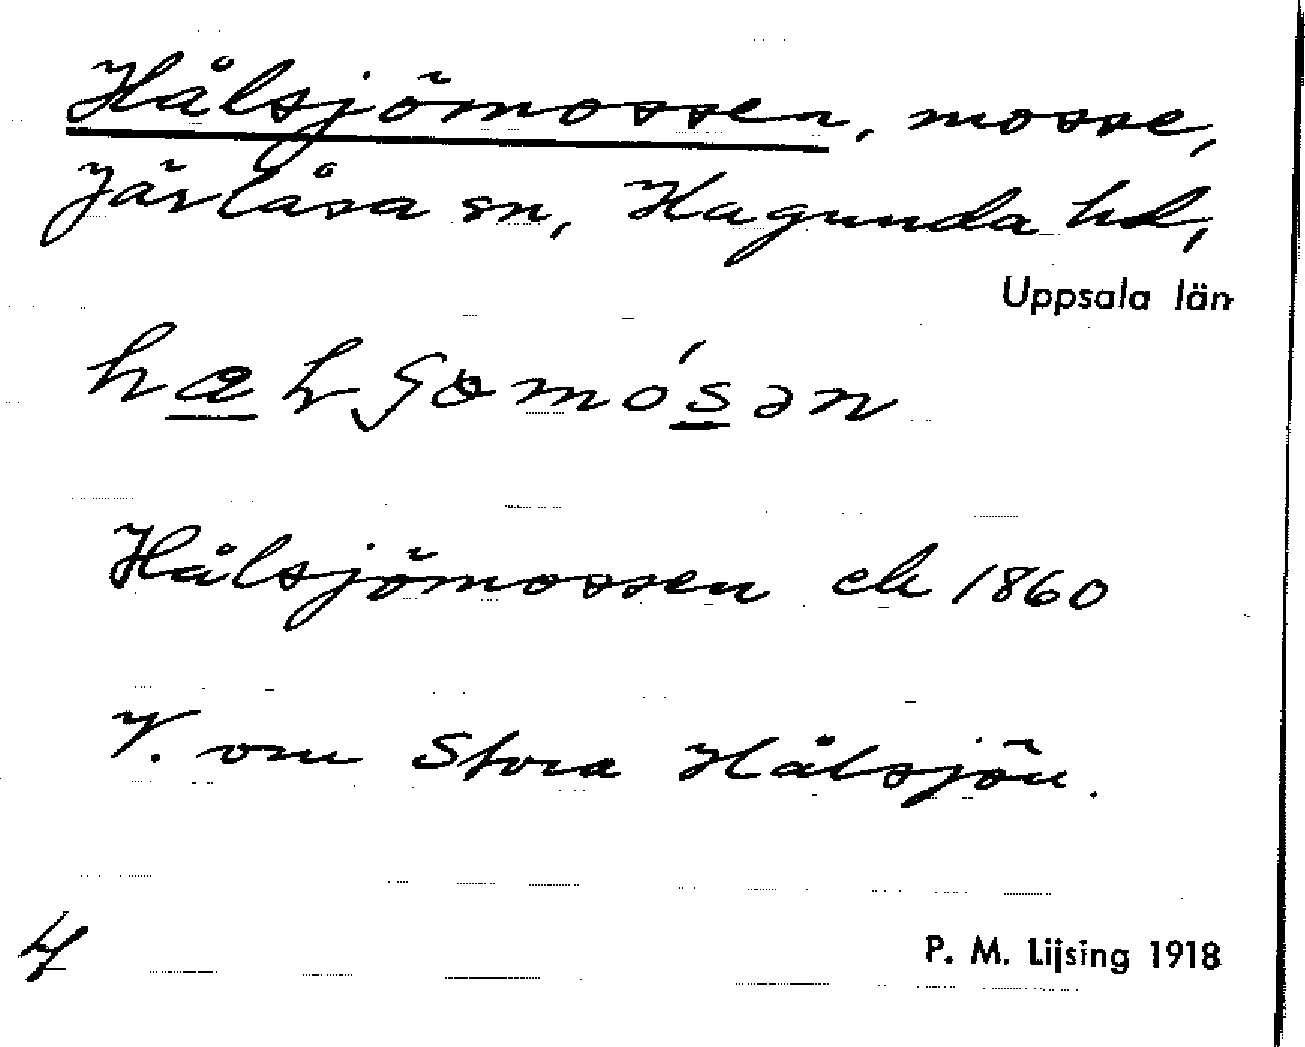 Hålsjömossen, mosse,
Järlåsa sn, Hagunda hd,
Uppsala län
Hålsjömossen ek 1860
V. om Stora Hålsjön.
4
P. M. Lijsing 1918